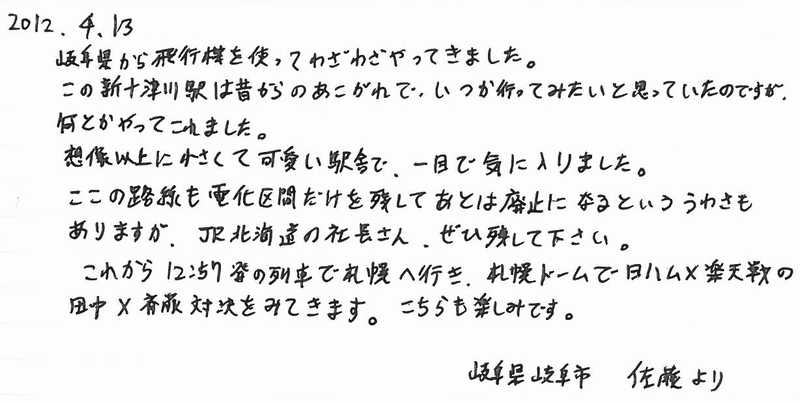 2012.4.13
岐阜県から飛行機を使ってわざわざやってきました。
この新十津川駅は昔からのあこがれで、いつか行ってみたいと思っていたのですが、
何とかやってこれました。
想像以上に小さくて可愛い駅舎で、一目で気に入りました。
ここの路線も電化区間だけを残してあとは廃止になるといううわさも
ありますが、JR北海道の社長さん、ぜひ残して下さい。
これから12:57発の列車で札幌へ行き、札幌ドームで日ハム×楽天戦の
田中×斉藤対決をみてきます。こちらも楽しみです。
岐阜県岐阜市 佐藤より